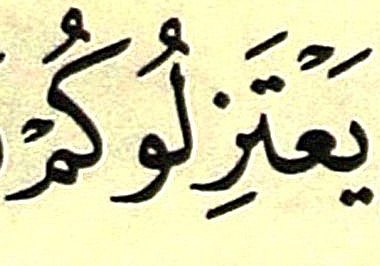 يَعْتَزِلُوكُمْ